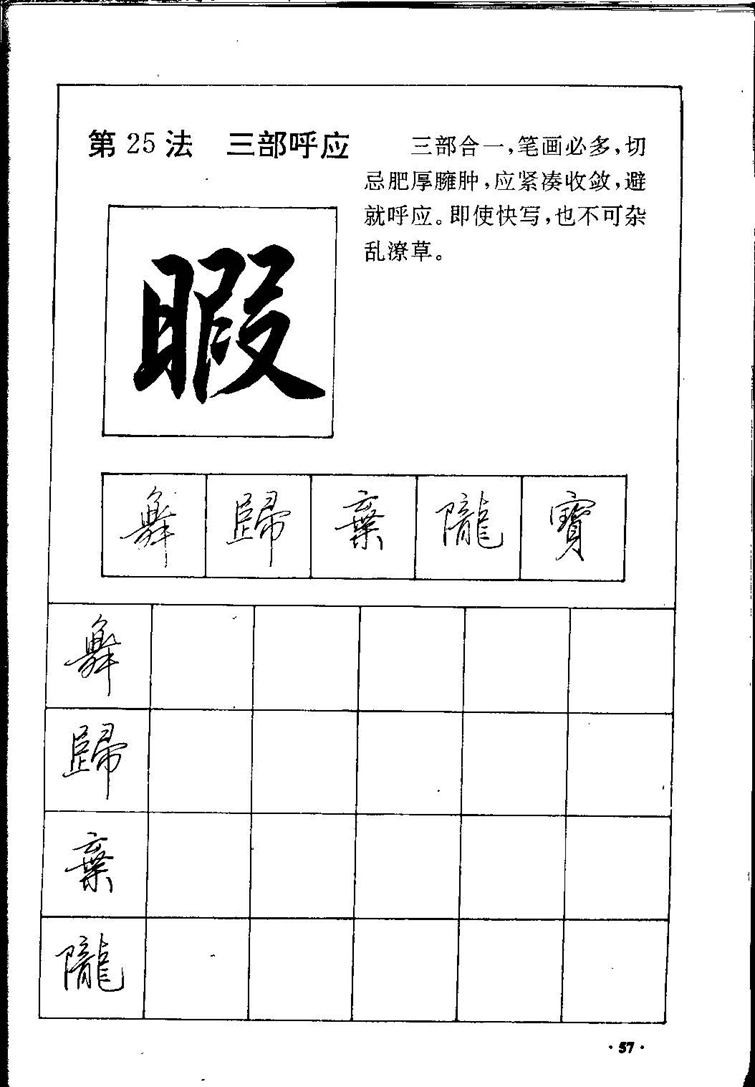 第25法 三部呼应
三部合一,笔画必多,切
忌肥厚臃肿,应紧凑收敛,避
就呼应。即使快写,也不可杂
乱潦草。
暇
舞 歸 棄 隴 寶
舞
歸
棄
隴
·57·